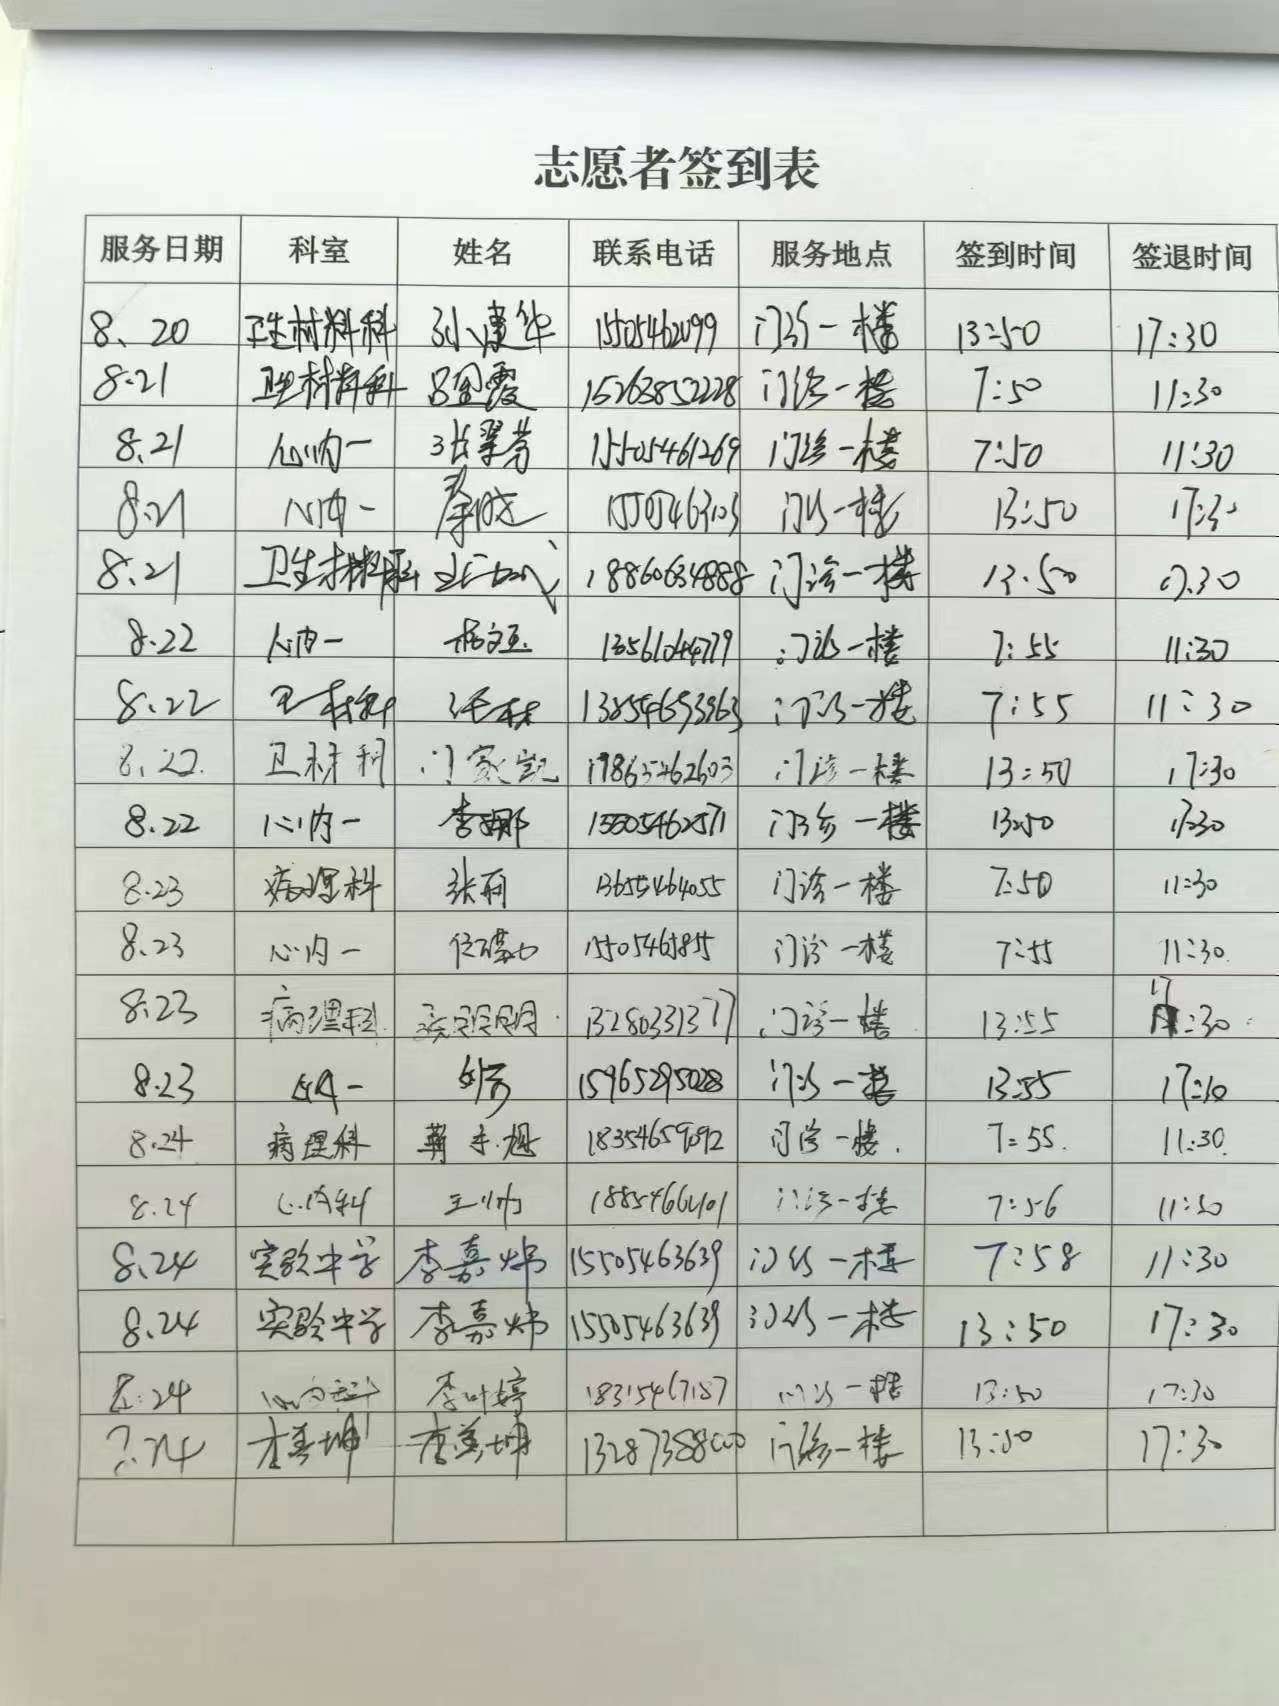 志愿者签到表
服务日期 科室 姓名 联系电话 服务地点 签到时间 签退时间
8.20 卫生材料科 孙建华 15505462099 门诊一楼 13:50 17:30
8.21 卫生材料科 吕金霞 15263852228 门诊一楼 7:50 11:30
8.21 心内一 张翠芳 15505461269 门诊一楼 7:50 11:30
8.21 心内一 秦晓 15505463103 门诊一楼 13:50 17:30
8.21 卫生材料科 18860634888 门诊一楼 13:50 17:30
8.22 心内一 杨文玉 13561044779 门诊一楼 7:55 11:30
8.22 卫材科 13854693963 门诊一楼 7:55 11:30
8.22 卫材科 门家凯 17865462603 门诊一楼 13:50 17:30
8.22 心内一 李娜 15505462571 门诊一楼 13:50 17:30
8.23 病理科 张丽 13655464055 门诊一楼 7:50 11:30
8.23 心内一 门诊一楼 7:55 11:30
8.23 病理科 13280331377 门诊一楼 13:55 17:30
8.23 心内一 15965295028 门诊一楼 13:55 17:30
8.24 病理科 18354659092 门诊一楼. 7:55. 11:30
8.24 心内科 王帅 门诊一楼 7:56 11:30
8.24 实验中学 李嘉炜 15505463639 门诊一楼 7:58 11:30
8.24 实验中学 李嘉炜 15505463639 门诊一楼 13:50 17:30
8.24 心内科 李叶婷 18315467187 门诊一楼 13:50 17:30
8.24 李美坤 李美坤 13287388000 门诊一楼 13:50 17:30